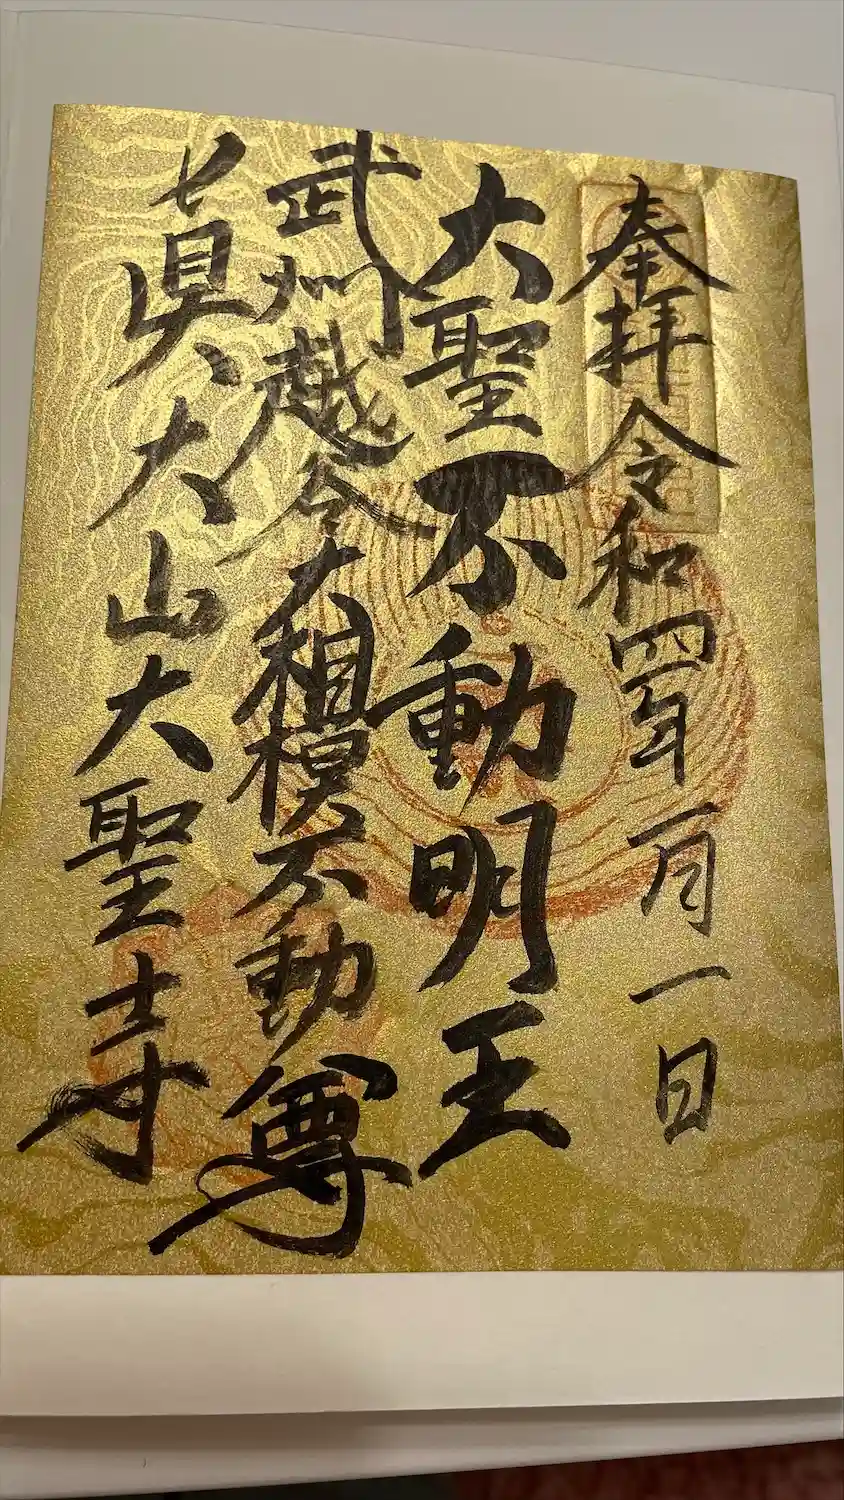 奉拝令和四年一月一日
大聖不動明王
武州越谷大相模不動尊
真大山大聖寺